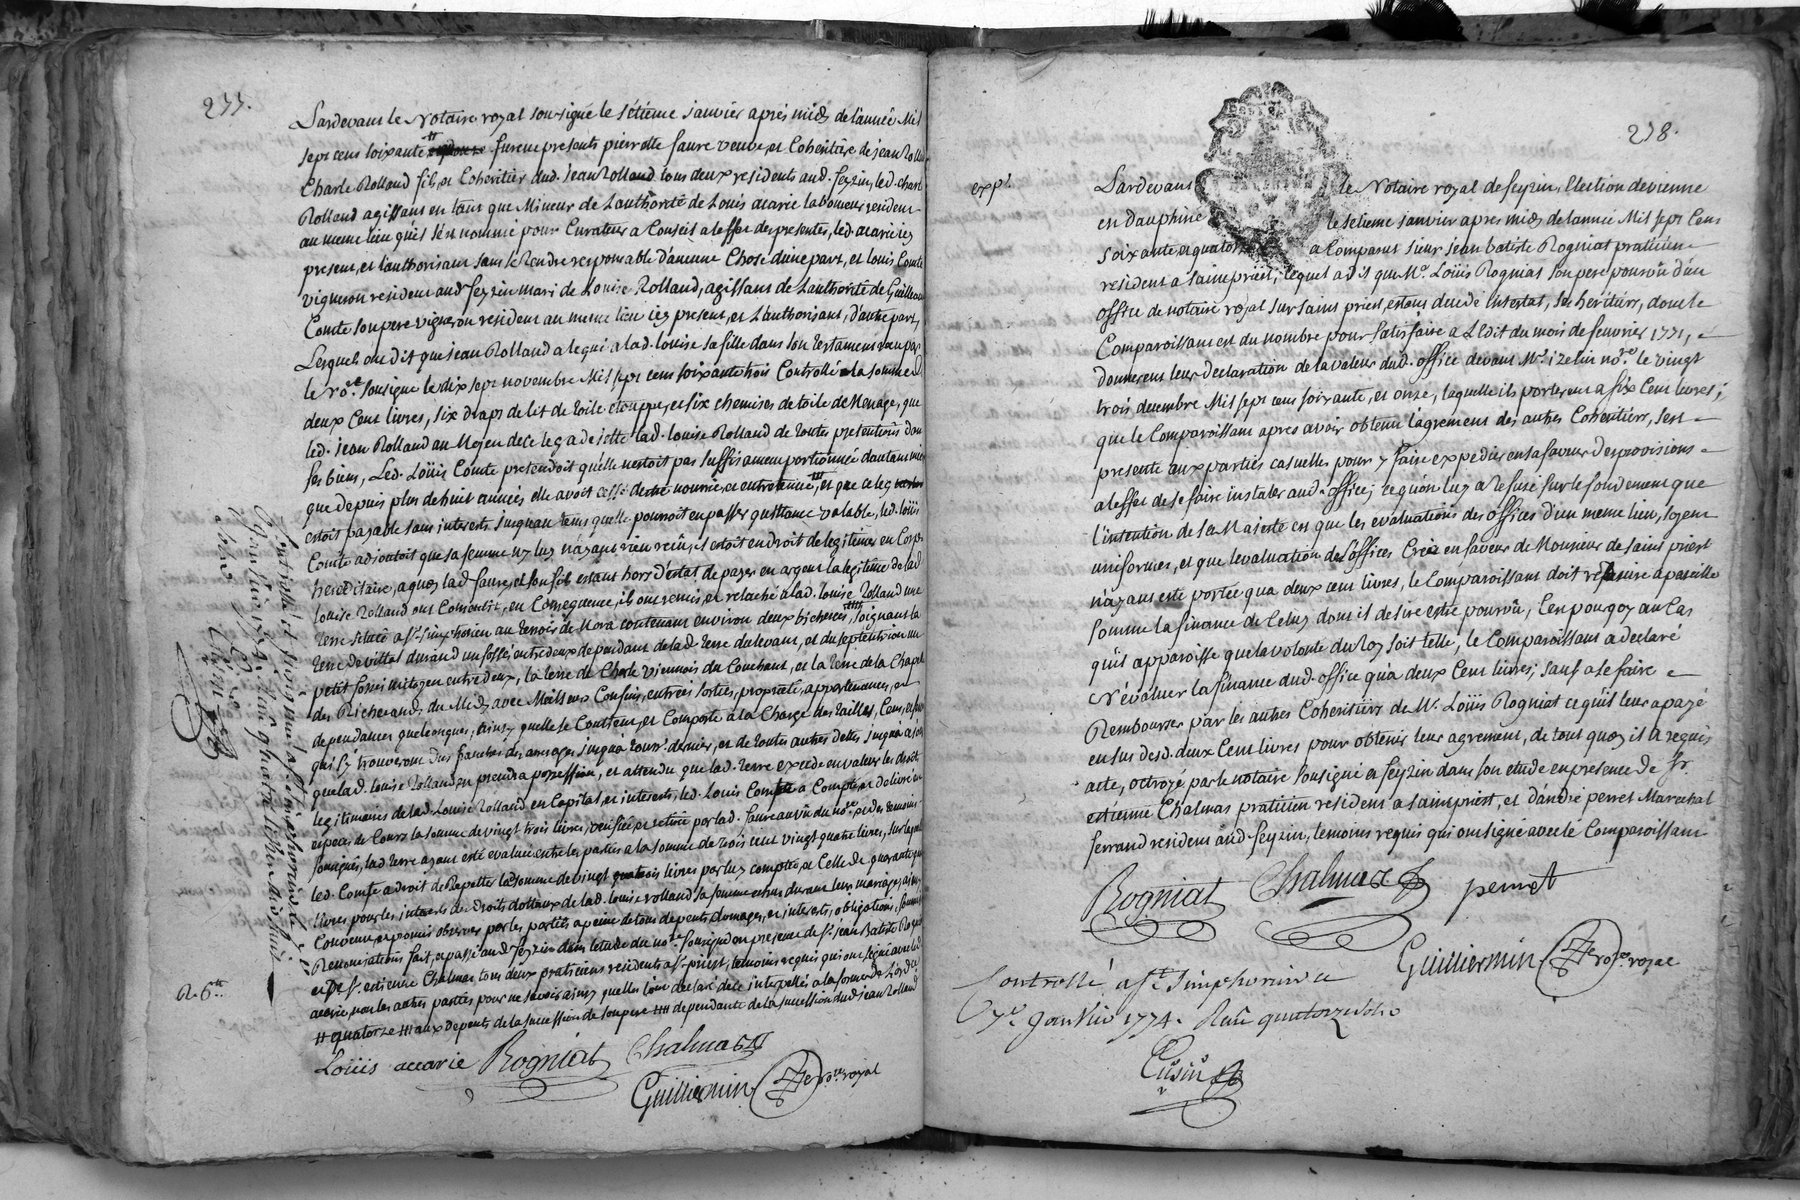 277.
Pardevant le Notaire royal sousigné le sétieme janvier apres midy de l'année Mil
sept cens soixante # furent presents pierrotte faure veuve et Coheritiere de jean Rolland
Charle Rolland fils et Coheritier dud. jean Rolland tous deux residents aud. feyzin, led. charle
Rolland agissant en tant que Mineur de L'authorité de Louis acarie laboureur resident
au meme lieu qu'il s'est nommé pour Curateur a Conseil a l'effet des presentes, led. acarie icy
present, et l'authorisant sans se rendre responsable d'aucune Chose d'une part, et louis Comte
vigneron resident aud. feyzin mari de Louise Rolland, agissant de L'authorité de Guilleaume
Comte son pere vigneron resident au meme lieu icy present, et L'authorisant, d'autre part,
Lesquels ont dit que jean Rolland a legué a lad. louise sa fille dans son testament reçu par
le no.re sousigné le dix sept novembre Mil sept cens soixante trois Controllé la somme de
deux Cent livres, six draps de lit de toile etouppe, et six chemises de toile de Menage, que
led. jean Rolland au Moyen de ce lega dejette lad. louise Rolland de toutes pretentions dans
ses biens, Led. Loüis Comte pretendoit qu'elle n'estoit pas suffisament portionnée d'autant mieux
que depuis plus de huit années elle avoit cessé d'etre nourrie et entretenue, et que ce leg
estoit payable sans interests jusqu'au tems qu'elle pourroit en passer quittance valable, led. loüis
Comte adjoutoit que sa femme ny luy n'ayant rien reçu, il estoit en droit de legitimer en Corps
hereditaire, a quoy lad. faure, et son fils estant hors d'estat de payer en argent la legitime de lad
louise Rolland ont Consenti, en Consequence, ils ont remis, et relaché a lad. louise Rolland une
terre située a St. simphorien au terroir de Mora contenant environ deux bicherées, joignant la
terre de vittal durand un fossé entredeux dependant de lad. terre du levant, et du septentrion un
petit fossé mitoyen entredeux, la terre de Charle viennois du Couchant, et la terre de la Chapelle
des Richerands du Midy avec Meilleurs Confins, entrées sorties, proprieté, appartenances, et
dependances quelconques, ainsy qu'elle se Contient, et Comporte a la Charge des tailles, Cens, et
qui s'y trouveront dus franches des arrerages jusqu'a terme dernier, et de toutes autres dettes jusqu'a ce jour
que lad. louise Rolland en prendra possession, et attendu que lad. terre excede en valeur les droits
legitimaires de lad. Louise Rolland en Capital et interests, led. Louis Comte a Compté, et delivré en
especes de Cours la somme de vingt trois livres, verifiée, et retirée par lad. faure au vû du no.re et des temoins
sousignés, lad. terre ayant esté evaluée entre les parties a la somme de trois cent vingt quatre livres, sur laquelle
led. Comte a droit de Repetter la somme de vingt trois livres par luy comptée, et Celle de quarante
livres pour les interets des droits dottaux de lad. louise rolland sa femme echus durant leur mariage, ainsy
Convenu, et promis observer par les parties a peine de tous depents, domages, et interets, obligations, soumissions
Renonciations fait, et passé aud. feyzin dans l'etude du no.re sousigné en presence de Sr. jean Batiste Rogniat
et de Sr. estienne Chalmas tous deux praticiens residents a St. priest, temoins requis qui ont signé avec led
acarie, non les autres parties pour ne savoir ainsy qu'elles l'ont declaré de ce interpellés a la forme de l'ord.ce
# quatorze ### aux depents de la succession de son pere #### dependante de la succession dud. jean Rolland
Loüis accarie Rogniat Chalmas
Guilliermin no.re royal
R. 6.tt
278.
exp.é
Pardevant le Notaire royal de feyzin, Election de vienne
en Dauphiné le setieme janvier apres midy de l'année Mil sept Cens
soixante et quatorze a Comparut sieur jean batiste Rogniat praticien
resident a saint priest, lequel a dit que Me. Loüis Rogniat son pere pourvû d'un
office de notaire royal sur saint priest, estant decedé intestat, ses heritiers, dont le
Comparoissant est du nombre pour satisfaire a L'Edit du mois de fevrier 1771,
donnerent leur declaration de la valeur dud. office devant Me. izelin no.re le vingt
trois decembre Mil sept cens soixante, et onze, laquelle ils porterent a six Cent livres;
que le Comparoissant apres avoir obtenu l'agrement des autres Coheritiers, s'est
presenté aux parties casuelles pour y faire expedier en sa faveur des provisions
a l'effet de se faire installer aud. office; ce qu'on luy a refusé sur le fondement que
l'intention de sa Majesté est que les evaluations des offices d'un meme lieu, soyent
uniformes, et que l'evaluation des offices Creés en faveur de Monsieur de saint priest
n'ayant esté portée qu'a deux cent livres, le Comparoissant doit reduire a pareille
somme la finance de Celuy dont il desire estre pourvû, C'en pourquoy au Cas
qu'il apparoisse que la volonté du Roy soit telle, le Comparoissant a declaré
n'évaluer la finance dud. office qu'a deux Cent livres; sauf a se faire
Rembourser par les autres Coheritiers de Me. Loüis Rogniat ce qu'il leur a payé
en sus desd. deux Cent livres pour obtenir leur agrement, de tout quoy il a requis
acte, octroyé par le notaire sousigné a feyzin dans son etude en presence de Sr.
estienne Chalmas praticien resident a saint priest, et d'andré perret Marechal
ferrand resident aud. feyzin, temoins requis qui ont signé avec le Comparoissant
Rogniat Chalmas perret
Guilliermin no.re royal
Controllé a St. Simphorien ce
7e. Janvier 1774. Reçu quatorze sols
Cusin